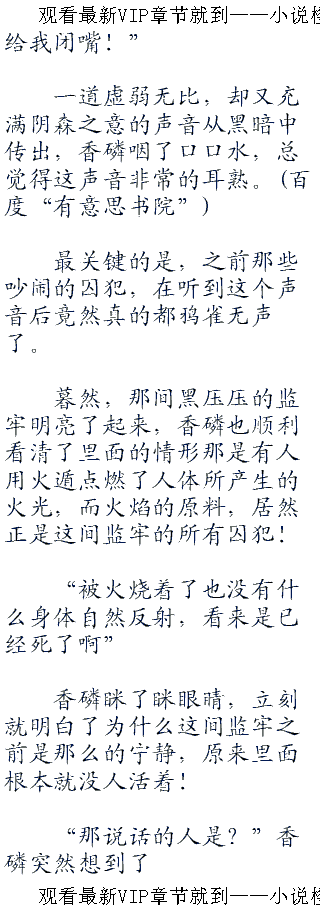 观看最新VIP章节就到——小说
给我闭嘴！”
一道虚弱无比，却又充
满阴森之意的声音从黑暗中
传出，香磷咽了口口水，总
觉得这声音非常的耳熟。(百
度“有意思书院”)
最关键的是，之前那些
吵闹的囚犯，在听到这个声
音后竟然真的都鸦雀无声
了。
蓦然，那间黑压压的监
牢明亮了起来，香磷也顺利
看清了里面的情形那是有人
用火遁点燃了人体所产生的
火光，而火焰的原料，居然
正是这间监牢的所有囚犯！
“被火烧着了也没有什
么身体自然反射，看来是已
经死了啊”
香磷眯了眯眼睛，立刻
就明白了为什么这间监牢之
前是那么的宁静，原来里面
根本就没人活着！
“那说话的人是？”香
磷突然想到了
观看最新VIP章节就到——小说